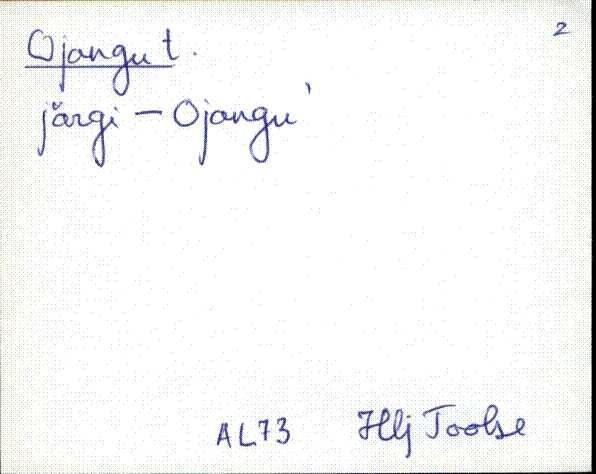 2
Ojangu t.
järgi – Ojangu'
AL73 Hlj Toolse